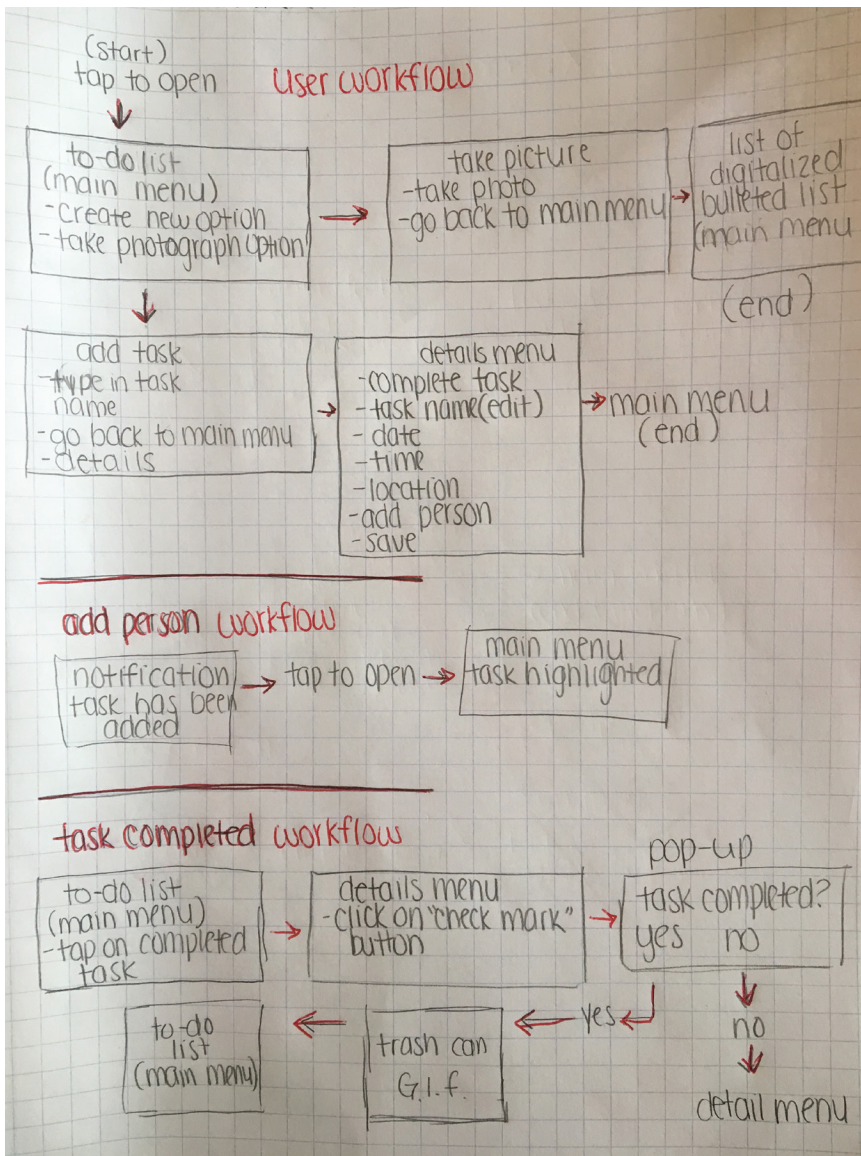 (start)
tap to open
user workflow
to-do list
(main menu)
-create new option
-take photograph option
take picture
-take photo
-go back to main menu
list of
digitalized
bulleted list
(main menu
(end)
add task
-type in task
name
-go back to main menu
-details
details menu
-complete task
-task name(edit)
-date
-time
-location
-add person
-save
main menu
(end)
add person workflow
notification
task has been
added
tap to open
main menu
task highlighted
task completed workflow
to-do list
(main menu)
-tap on completed
task
details menu
-click on "check mark"
button
pop-up
task completed?
yes no
yes
no
detail menu
trash can
G.I.F.
to-do
list
(main menu)